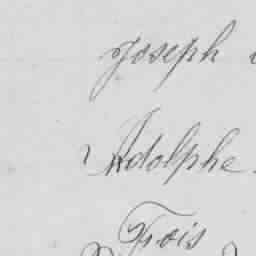 Joseph
Adolphe
Fois